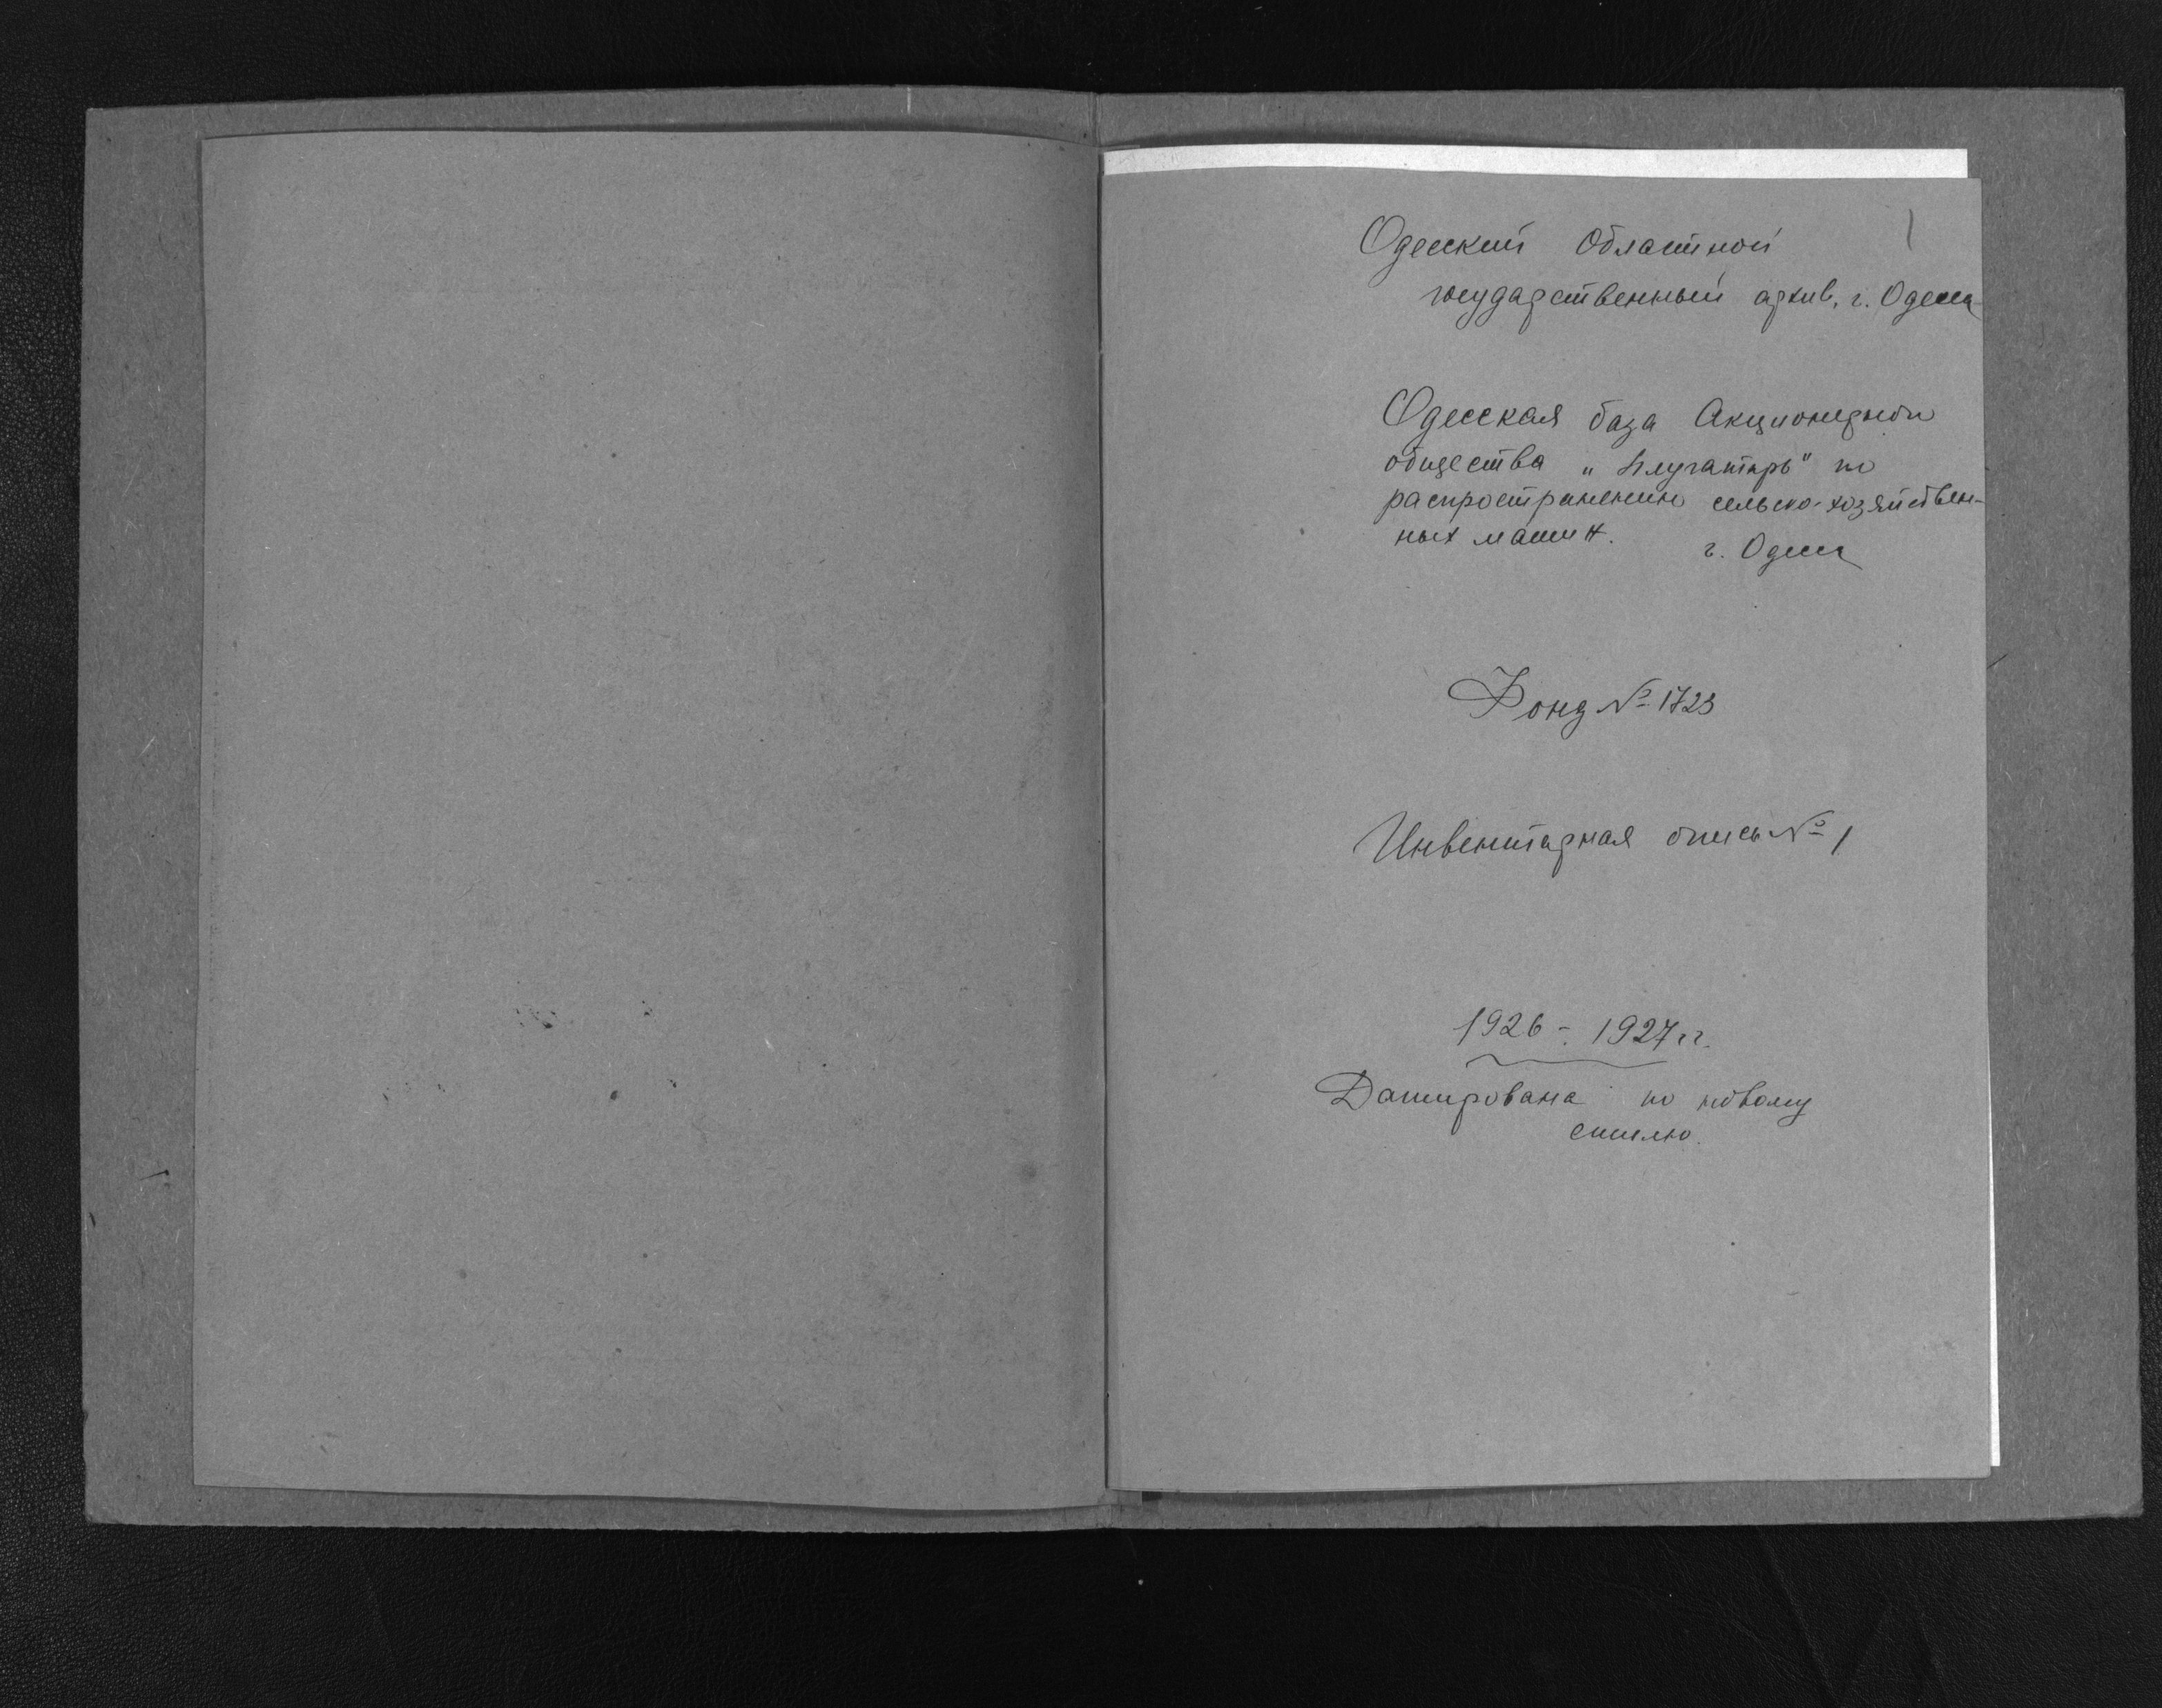 1
Одесский Областной
государственный архив, г. Одесса
Одесская база Акционерного
общества „Плугатарь" по
распространению сельско-хозяйствен-
ных машин.
г. Одесса
Фонд № 1723
Инвентарная опись № 1
1926 - 1927 гг.
Датирована по новому
стилю.